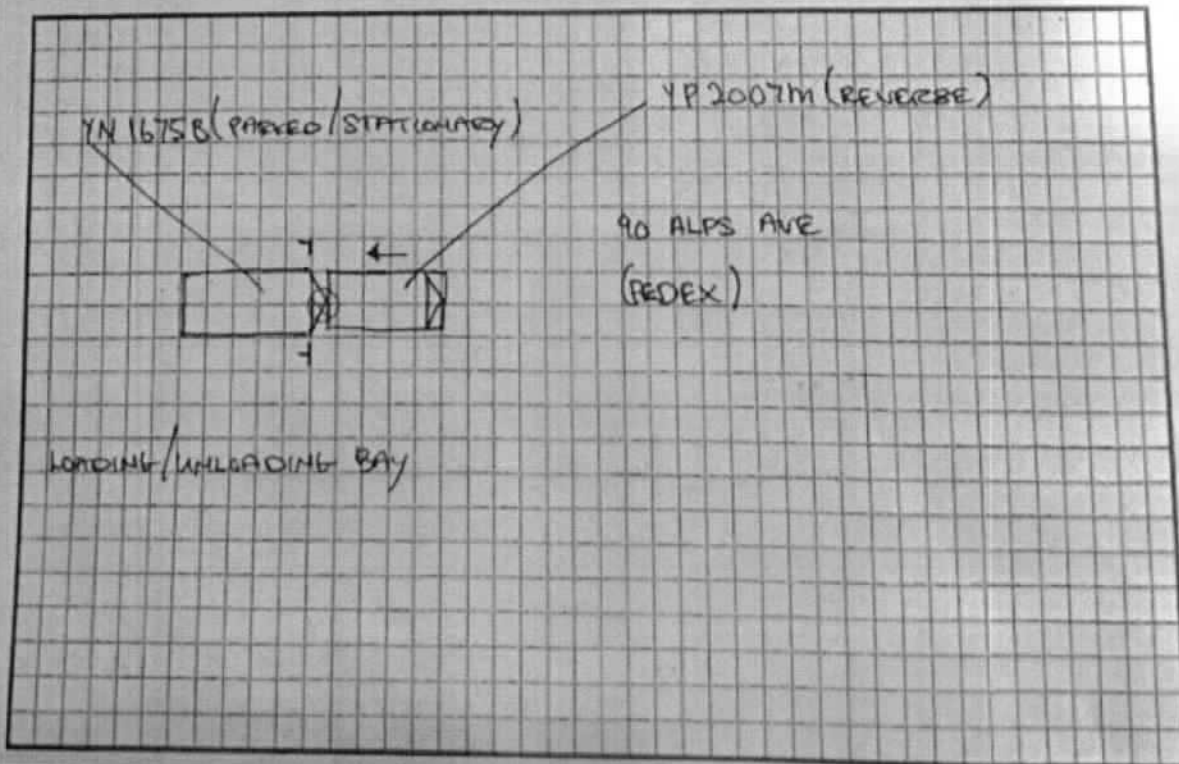 YN 1675B (PARKED/STATIONARY)
YP 2007M (REVERSE)
90 ALPS AVE
(FEDEX)
LOADING/UNLOADING BAY